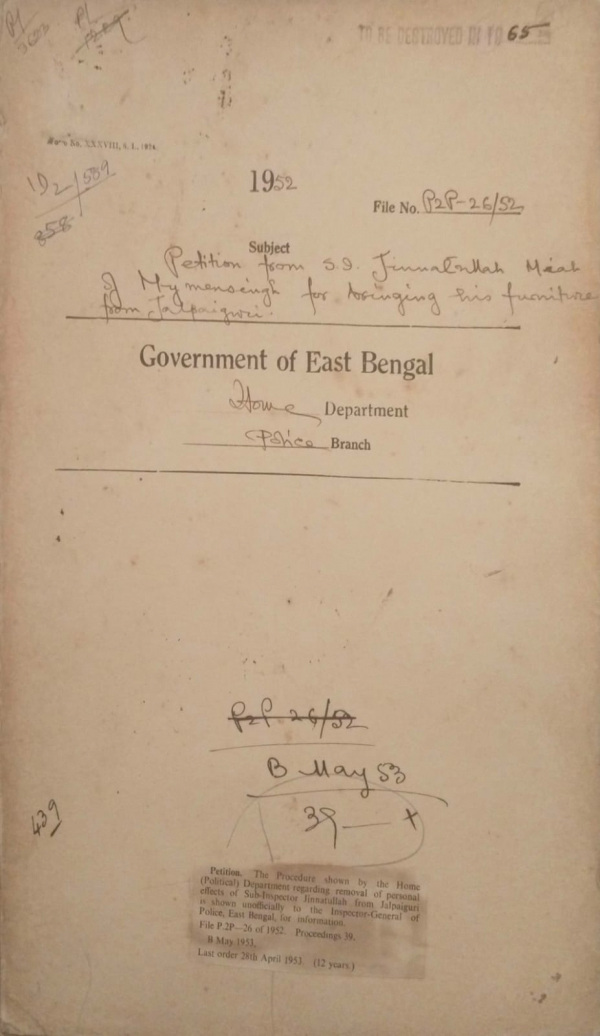 TO BE DESTROYED IN 19 65
P1
P1
Form No. XXXVIII, S. L., 1874
1D2/589
858
1952
File No. P2P-26/52
Subject
Petition from S.I. Jinnatullah Miah
of Mymensingh for bringing his furniture
from Jalpaiguri.
Government of East Bengal
Home Department
Police Branch
P2P 26/52
B May 53
39 — +
439
Petition. The Procedure shown by the Home
(Political) Department regarding removal of personal
effects of Sub-Inspector Jinnatullah from Jalpaiguri
is shown unofficially to the Inspector-General of
Police, East Bengal, for information.
File P.2P—26 of 1952. Proceedings 39.
B May 1953.
Last order 28th April 1953. (12 years.)